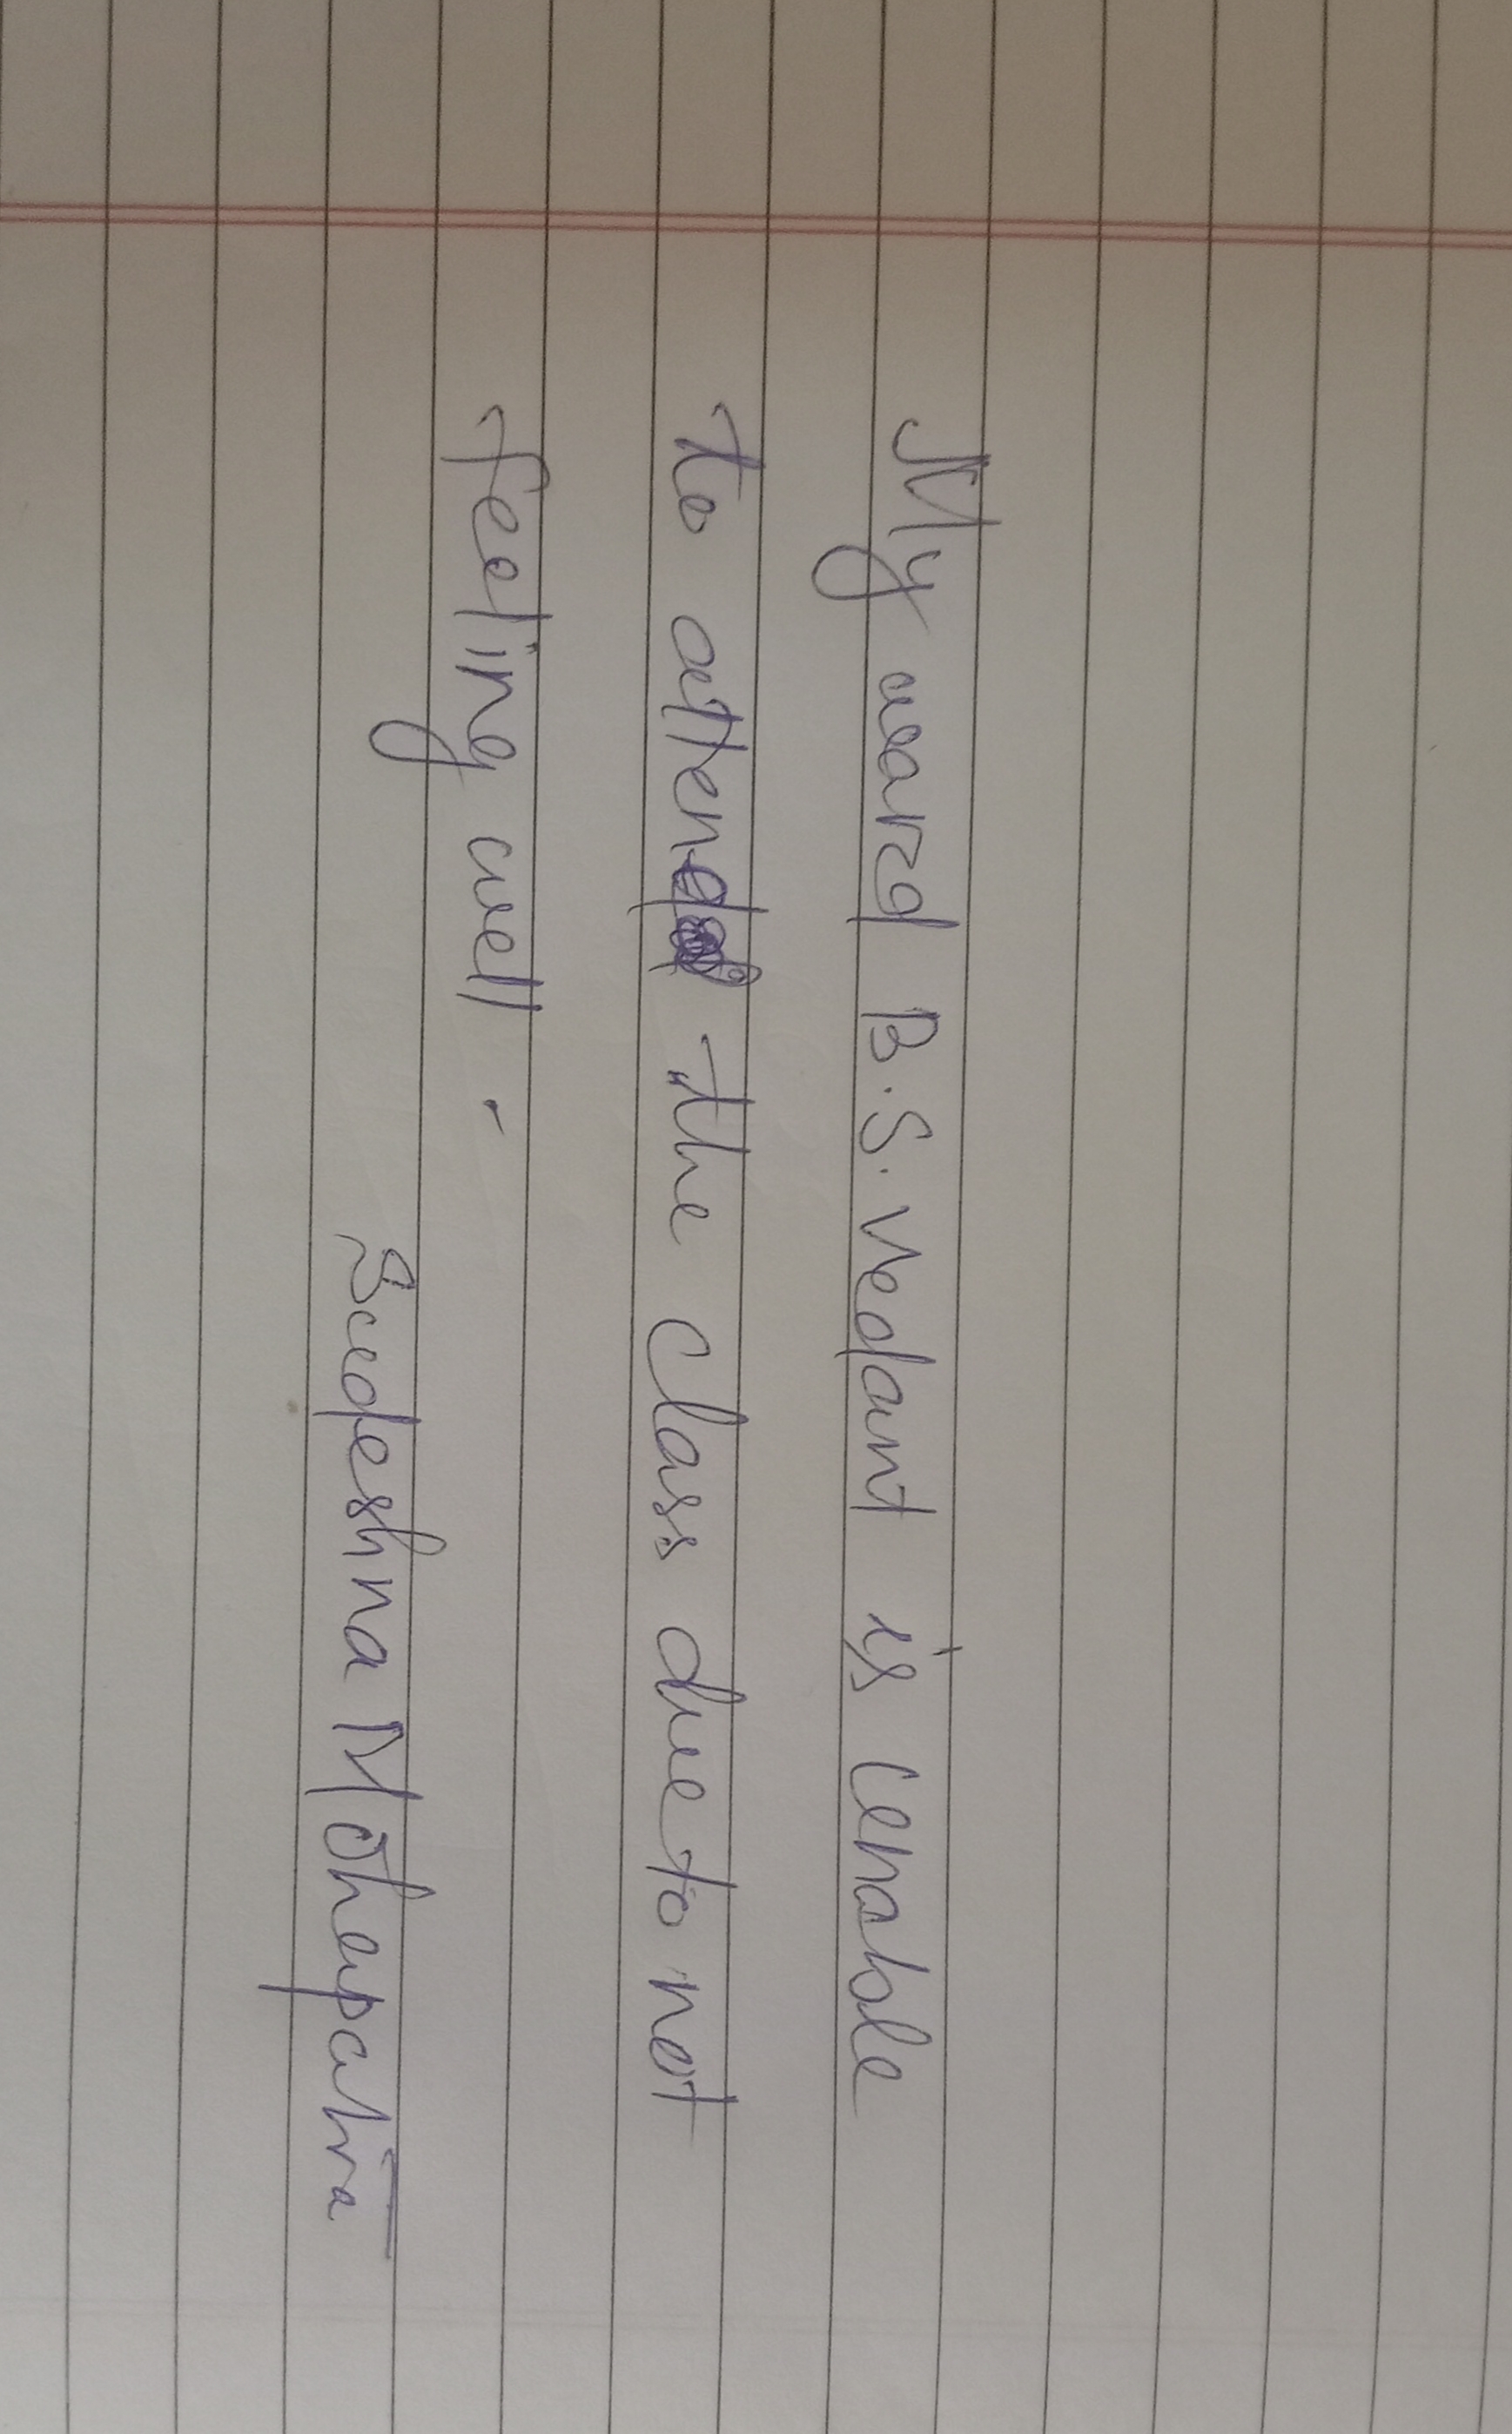 My ward B.S. Vedant is unable
to attend the class due to not
feeling well.
Sudeshna Mohapatra